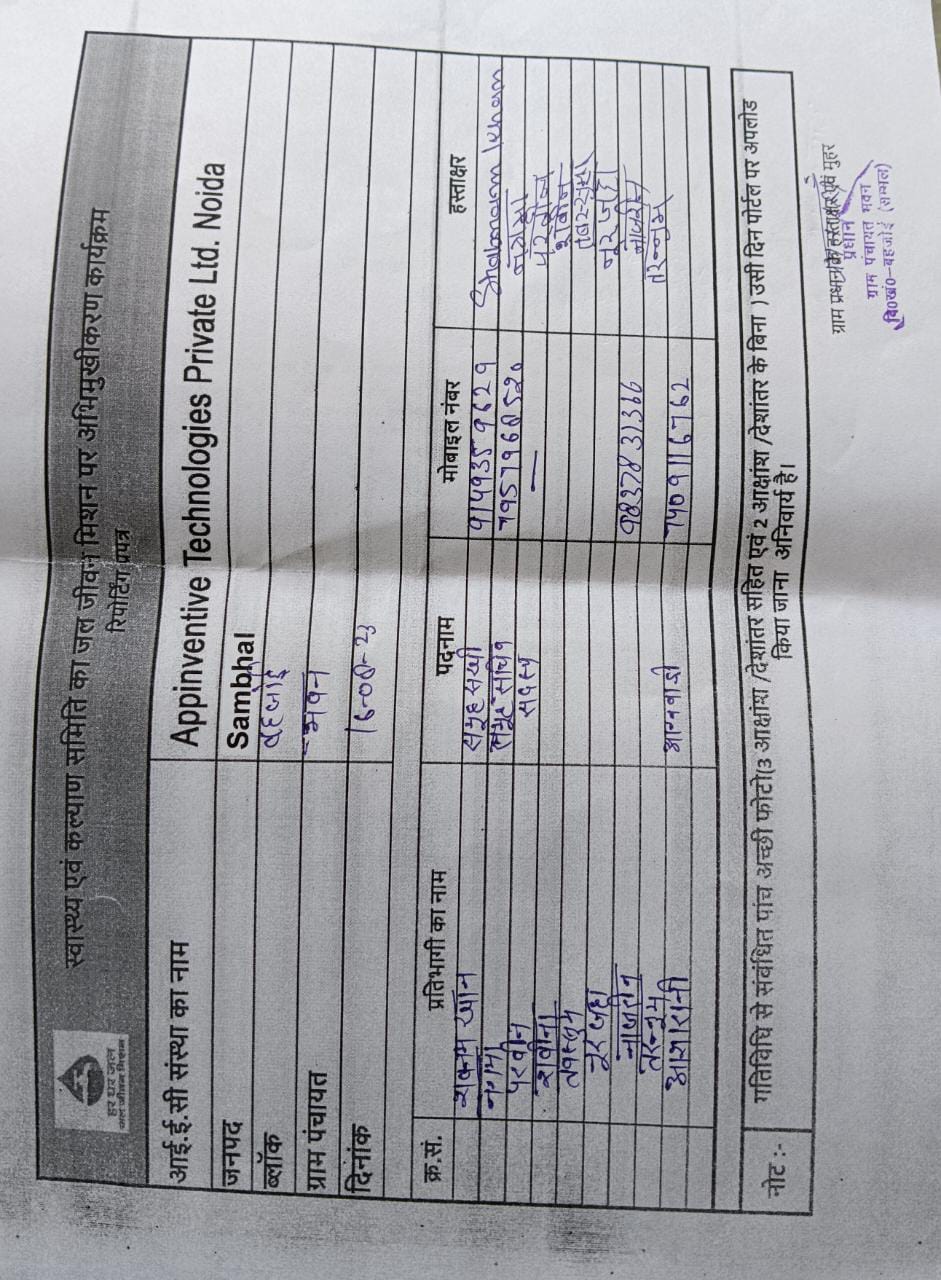 हर घर जल
जल जीवन मिशन
स्वास्थ्य एवं कल्याण समिति का जल जीवन मिशन पर अभिमुखीकरण कार्यक्रम
रिपोर्टिंग प्रपत्र
आई.ई.सी संस्था का नाम Appinventive Technologies Private Ltd. Noida
जनपद Sambhal
ब्लॉक बहजोई
ग्राम पंचायत भवन
दिनांक 16-08-23
क्र.सं. प्रतिभागी का नाम पदनाम मोबाइल नंबर हस्ताक्षर
शबनम खान समूह सखी 9149359629 Shabnam Khan
नगमा समूह सचिव 7957960520 नगमा
परवीन सदस्य — परवीन
शबीना शबीना
तबस्सुम
नूरजहां नूरजहां
नाजरीन 9837831366 नाजरीन
तरन्नुम तरन्नुम
आशा रानी आंगनवाडी 7409116762
नोट :- गतिविधि से संबंधित पांच अच्छी फोटो(3 आक्षांश /देशांतर सहित एवं 2 आक्षांश /देशांतर के बिना ) उसी दिन पोर्टल पर अपलोड
किया जाना अनिवार्य है।
ग्राम प्रधान के हस्ताक्षर एवं मुहर
प्रधान
ग्राम पंचायत भवन
वि०खं०-बहजोई (सम्भल)